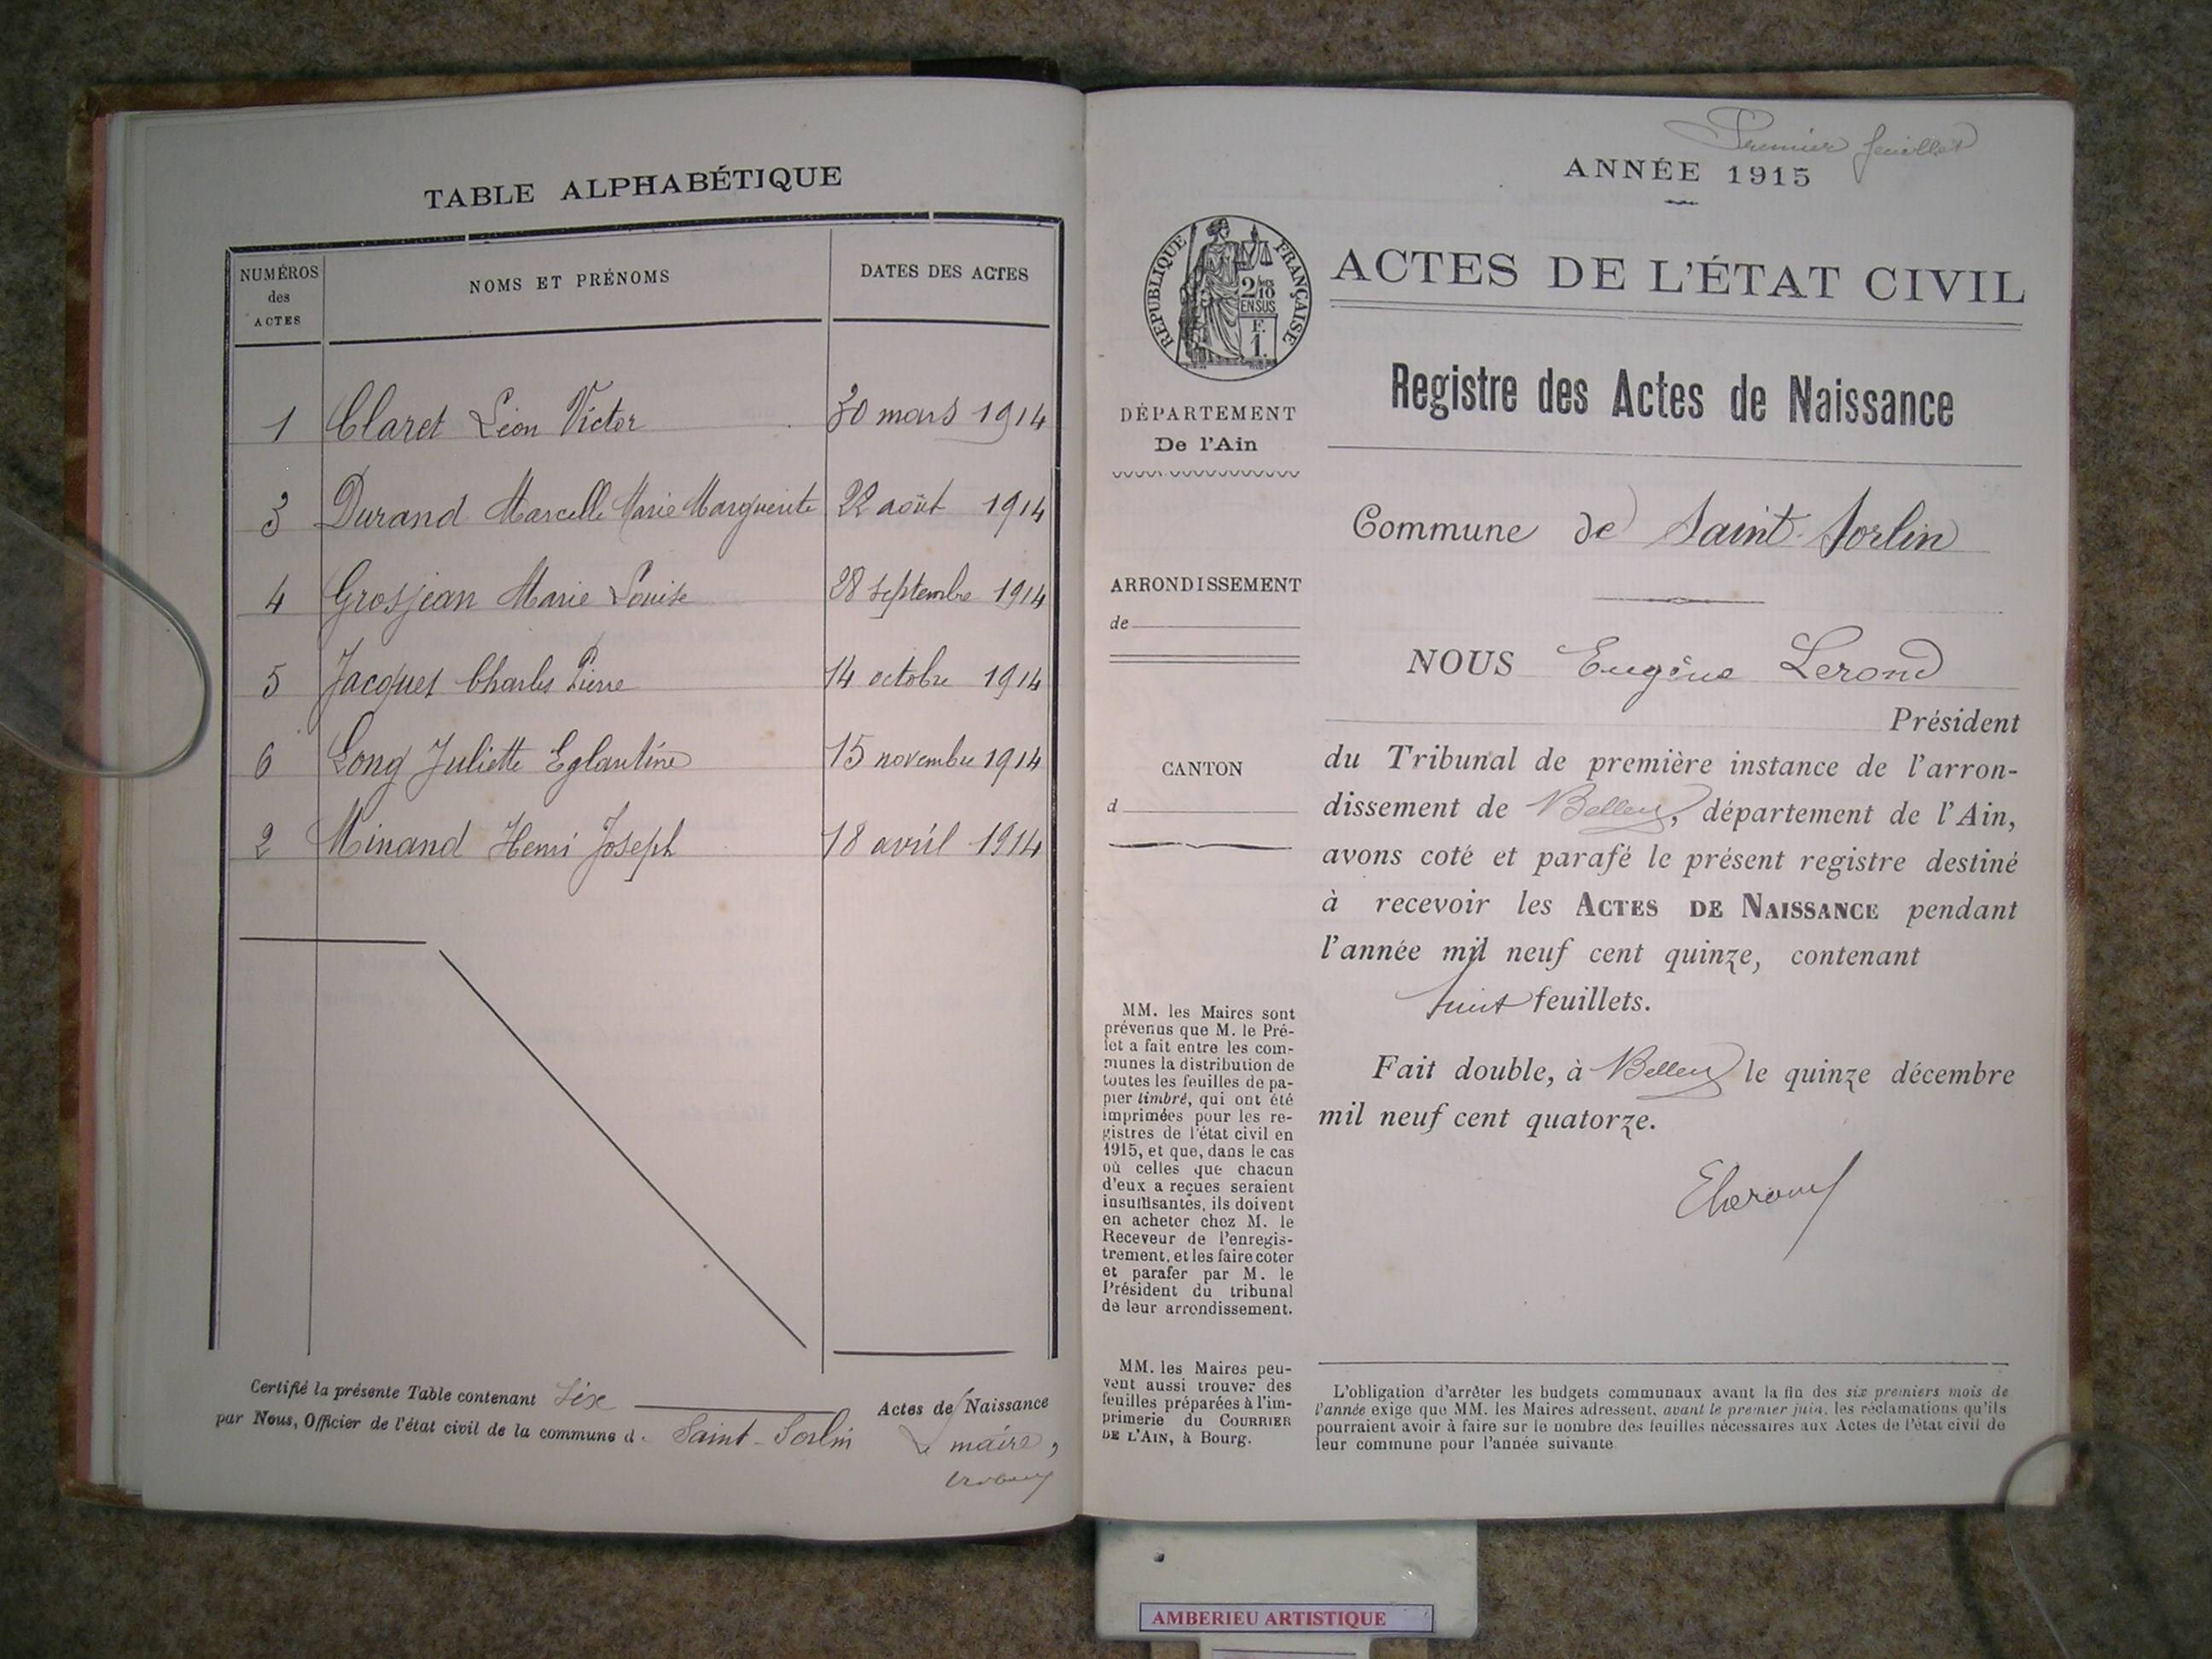 TABLE ALPHABÉTIQUE
NUMÉROS
des
ACTES
NOMS ET PRÉNOMS
DATES DES ACTES
1 Claret Léon Victor 30 mars 1914
3 Durand Marcelle Marie Marguerite 22 août 1914
4 Grosjean Marie Louise 28 septembre 1914
5 Jacquet Charles Pierre 14 octobre 1914
6 Long Juliette Eglantine 15 novembre 1914
2 Minand Henri Joseph 18 avril 1914
Certifié la présente Table contenant Six Actes de Naissance
par Nous, Officier de l'état civil de la commune d. Saint-Sorlin
Le maire,
Premier feuillet
ANNÉE 1915
RÉPUBLIQUE FRANÇAISE
2/10
EN SUS
F.
1.
ACTES DE L'ÉTAT CIVIL
DÉPARTEMENT
De l'Ain
Registre des Actes de Naissance
Commune de Saint-Sorlin
ARRONDISSEMENT
de
CANTON
d
NOUS Eugène Lerond
Président
du Tribunal de première instance de l'arron-
dissement de Belley, département de l'Ain,
avons coté et parafé le présent registre destiné
à recevoir les ACTES DE NAISSANCE pendant
l'année mil neuf cent quinze, contenant
huit feuillets.
Fait double, à Belley le quinze décembre
mil neuf cent quatorze.
ELerond
MM. les Maires sont
prévenus que M. le Pré-
fet a fait entre les com-
munes la distribution de
toutes les feuilles de pa-
pier timbré, qui ont été
imprimées pour les re-
gistres de l'état civil en
1915, et que, dans le cas
où celles que chacun
d'eux a reçues seraient
insuffisantes, ils doivent
en acheter chez M. le
Receveur de l'enregis-
trement, et les faire coter
et parafer par M. le
Président du tribunal
de leur arrondissement.
MM. les Maires peu-
vent aussi trouver des
feuilles préparées à l'im-
primerie du COURRIER
DE L'AIN, à Bourg.
L'obligation d'arrêter les budgets communaux avant la fin des six premiers mois de
l'année exige que MM. les Maires adressent, avant le premier juin, les réclamations qu'ils
pourraient avoir à faire sur le nombre des feuilles nécessaires aux Actes de l'état civil de
leur commune pour l'année suivante
AMBERIEU ARTISTIQUE